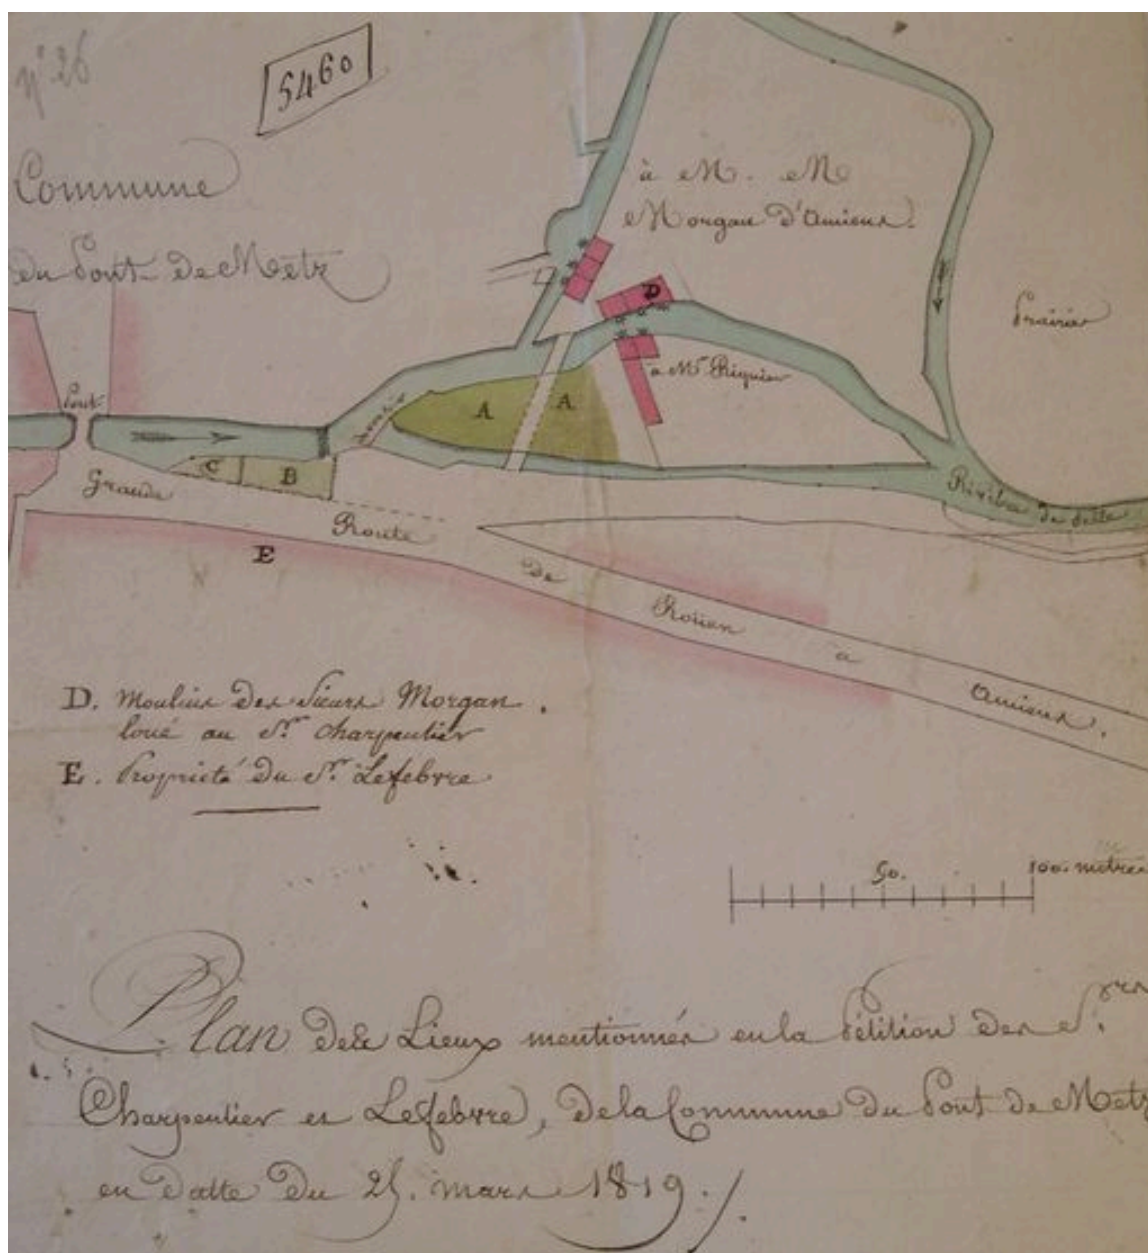 n° 26
5460
Commune
du Pont de Metz
à M. M
Morgan d'Amiens.
Prairie
D
à Mr. Riquier
Pont
A
A
C
B
Grande
Route
de
Rouen
à
Amiens.
Rivière de Selle
E
D. Moulin des Sieurs Morgan.
loué au Sr. Charpentier
E. Propriété du Sr. Lefebvre
50.
100. mètres
Plan des Lieux mentionnés en la Pétition des S.rs
Charpentier et Lefebvre, de la Commune du Pont de Metz
en datte du 25. mars 1819./.